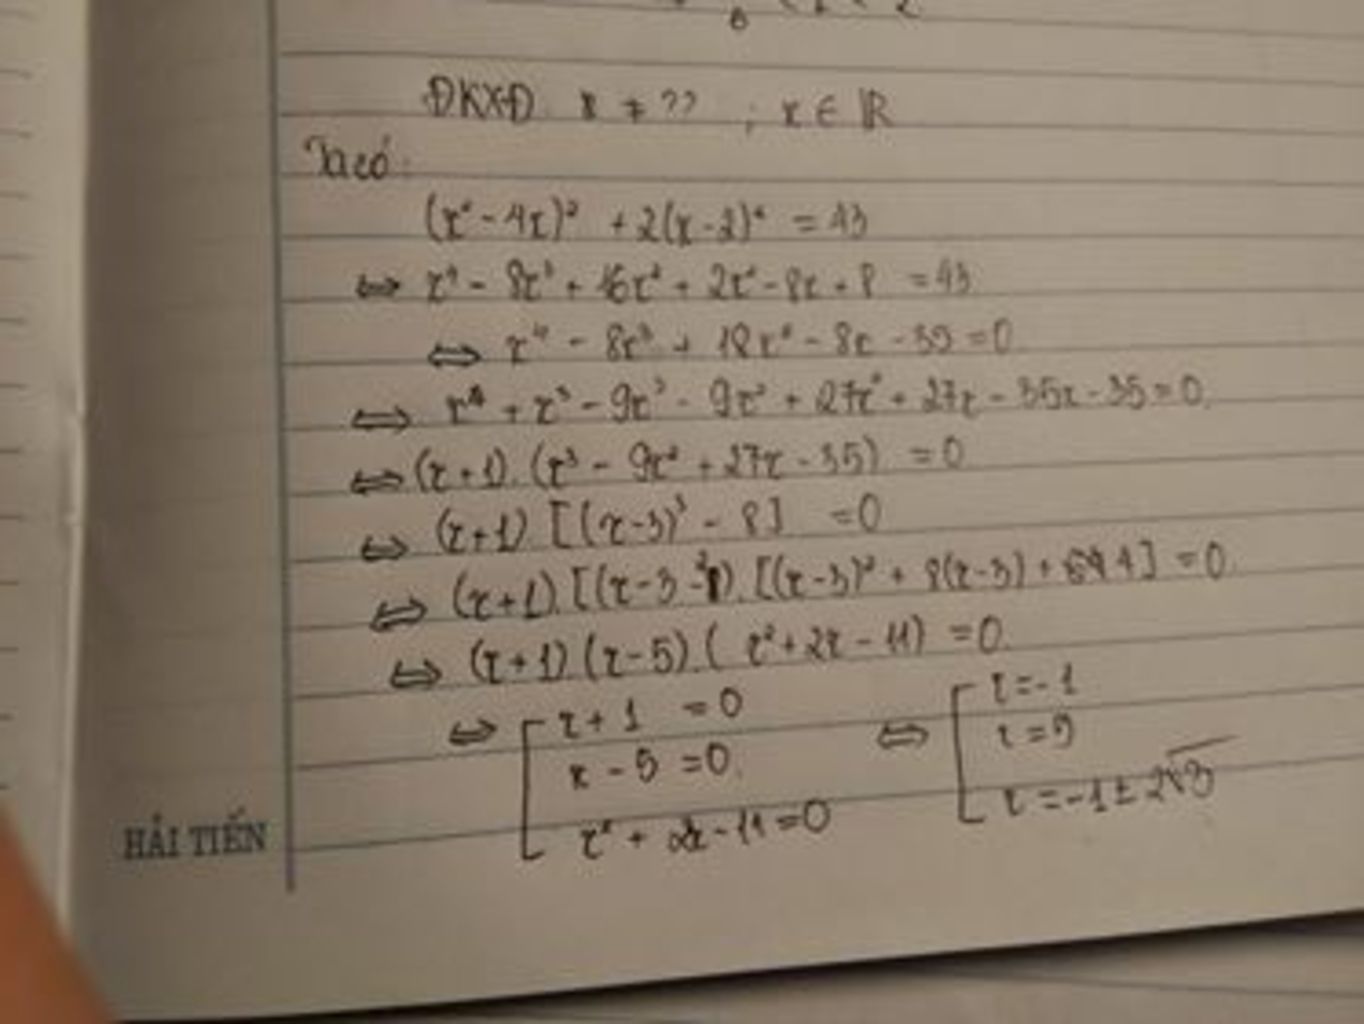 ĐKXĐ x ≠ ?? ; x ∈ ℝ
Ta có:
(x² - 4x)² + 2(x - 2)² = 43
⇔ x⁴ - 8x³ + 16x² + 2x² - 8x + 8 = 43
⇔ x⁴ - 8x³ + 18x² - 8x - 35 = 0
⇔ x⁴ + x³ - 9x³ - 9x² + 27x² + 27x - 35x - 35 = 0
⇔ (x + 1).(x³ - 9x² + 27x - 35) = 0
⇔ (x+1) [(x-3)³ - 8] = 0
⇔ (x+1).[(x-3-2) [(x-3)² + 8(x-3) + 4] = 0
⇔ (x+1)(x-5)(x² + 2x - 11) = 0
⇔ [ x + 1 = 0 ⇔ [ x = -1
x - 5 = 0 x = 5
x² + 2x - 11 = 0 x = -1 ± 2√3
HẢI TIẾN